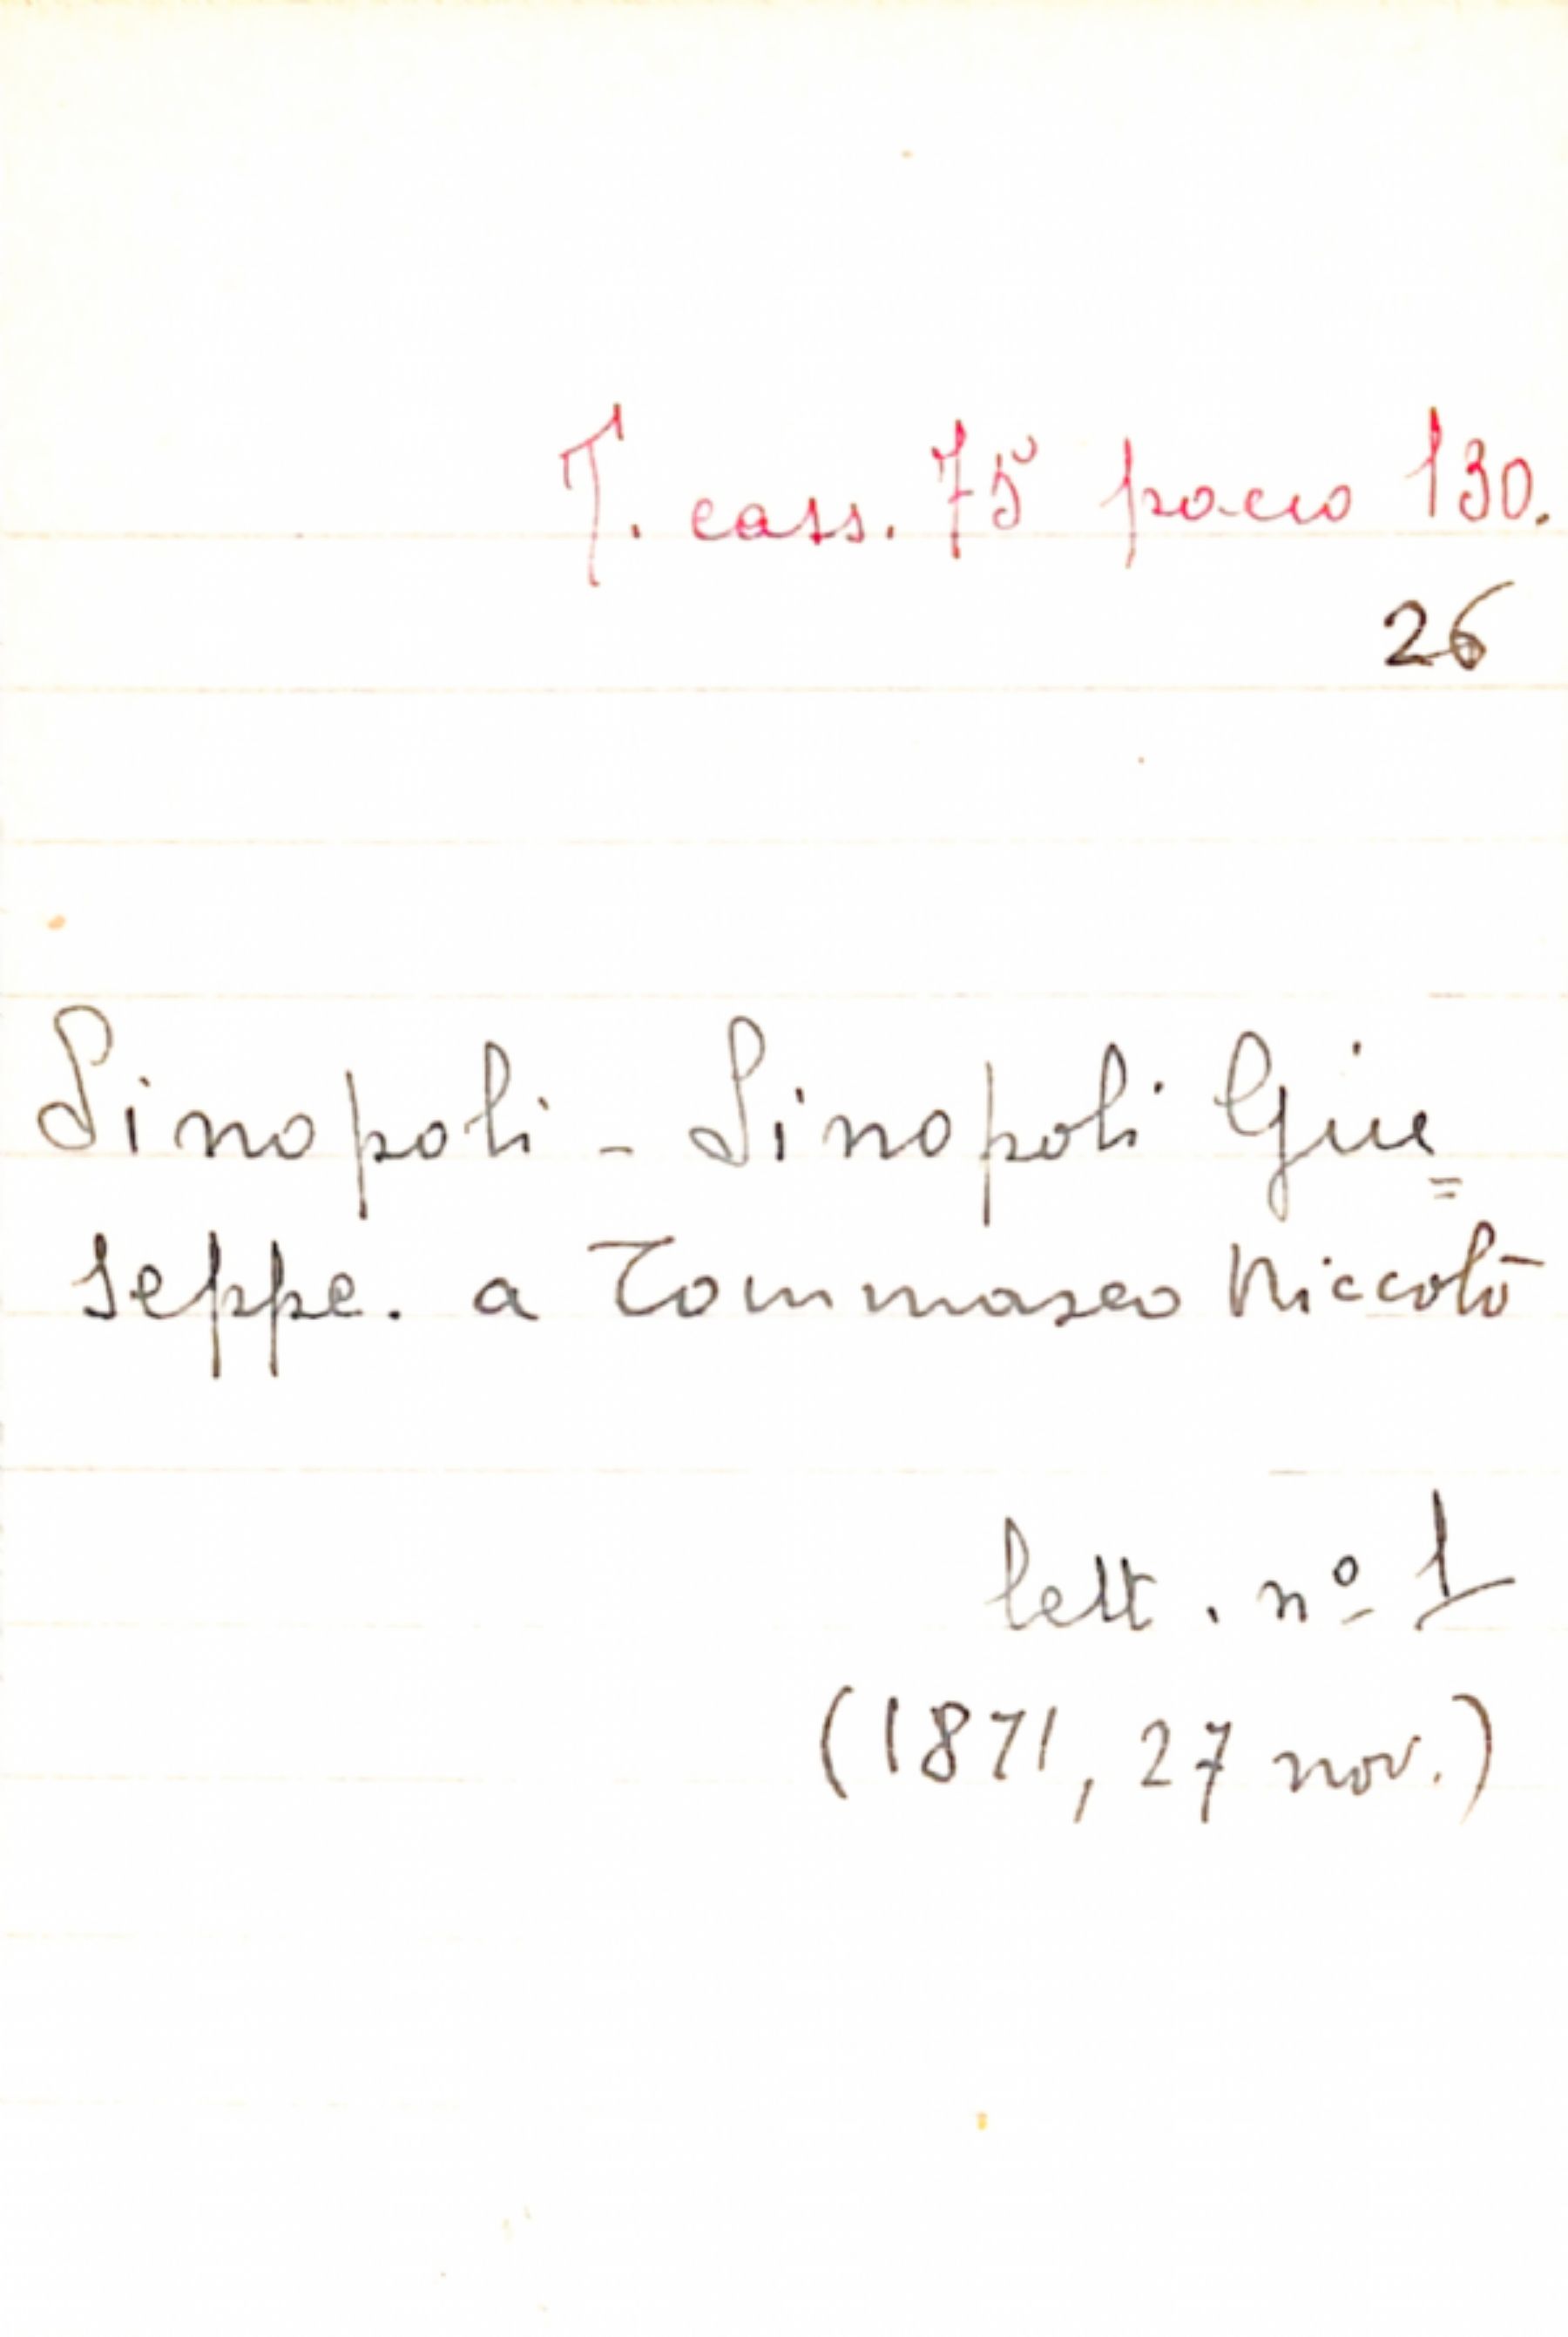 T. cass. 75 pacco 130.
26
Sinopoli - Sinopoli Giu=
seppe. a Tommaseo Niccolò
lett. nº 1
(1871, 27 nov.)